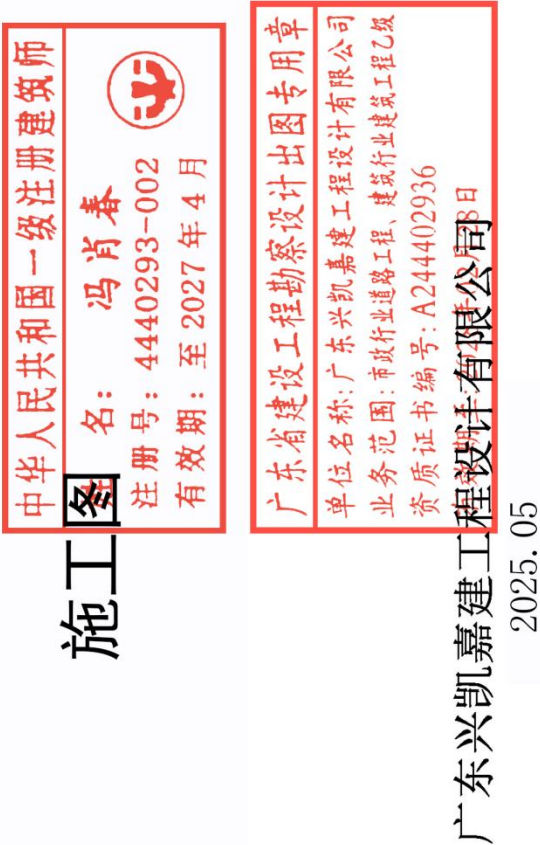 中华人民共和国一级注册建筑师
名: 冯肖春
注册号: 4440293-002
有效期: 至 2027 年 4 月
施工图
广东省建设工程勘察设计出图专用章
单位名称:广东兴凯嘉建工程设计有限公司
业务范围:市政行业道路工程、建筑行业建筑工程乙级
资质证书编号:A244402936
广东兴凯嘉建工程设计有限公司
2025.05